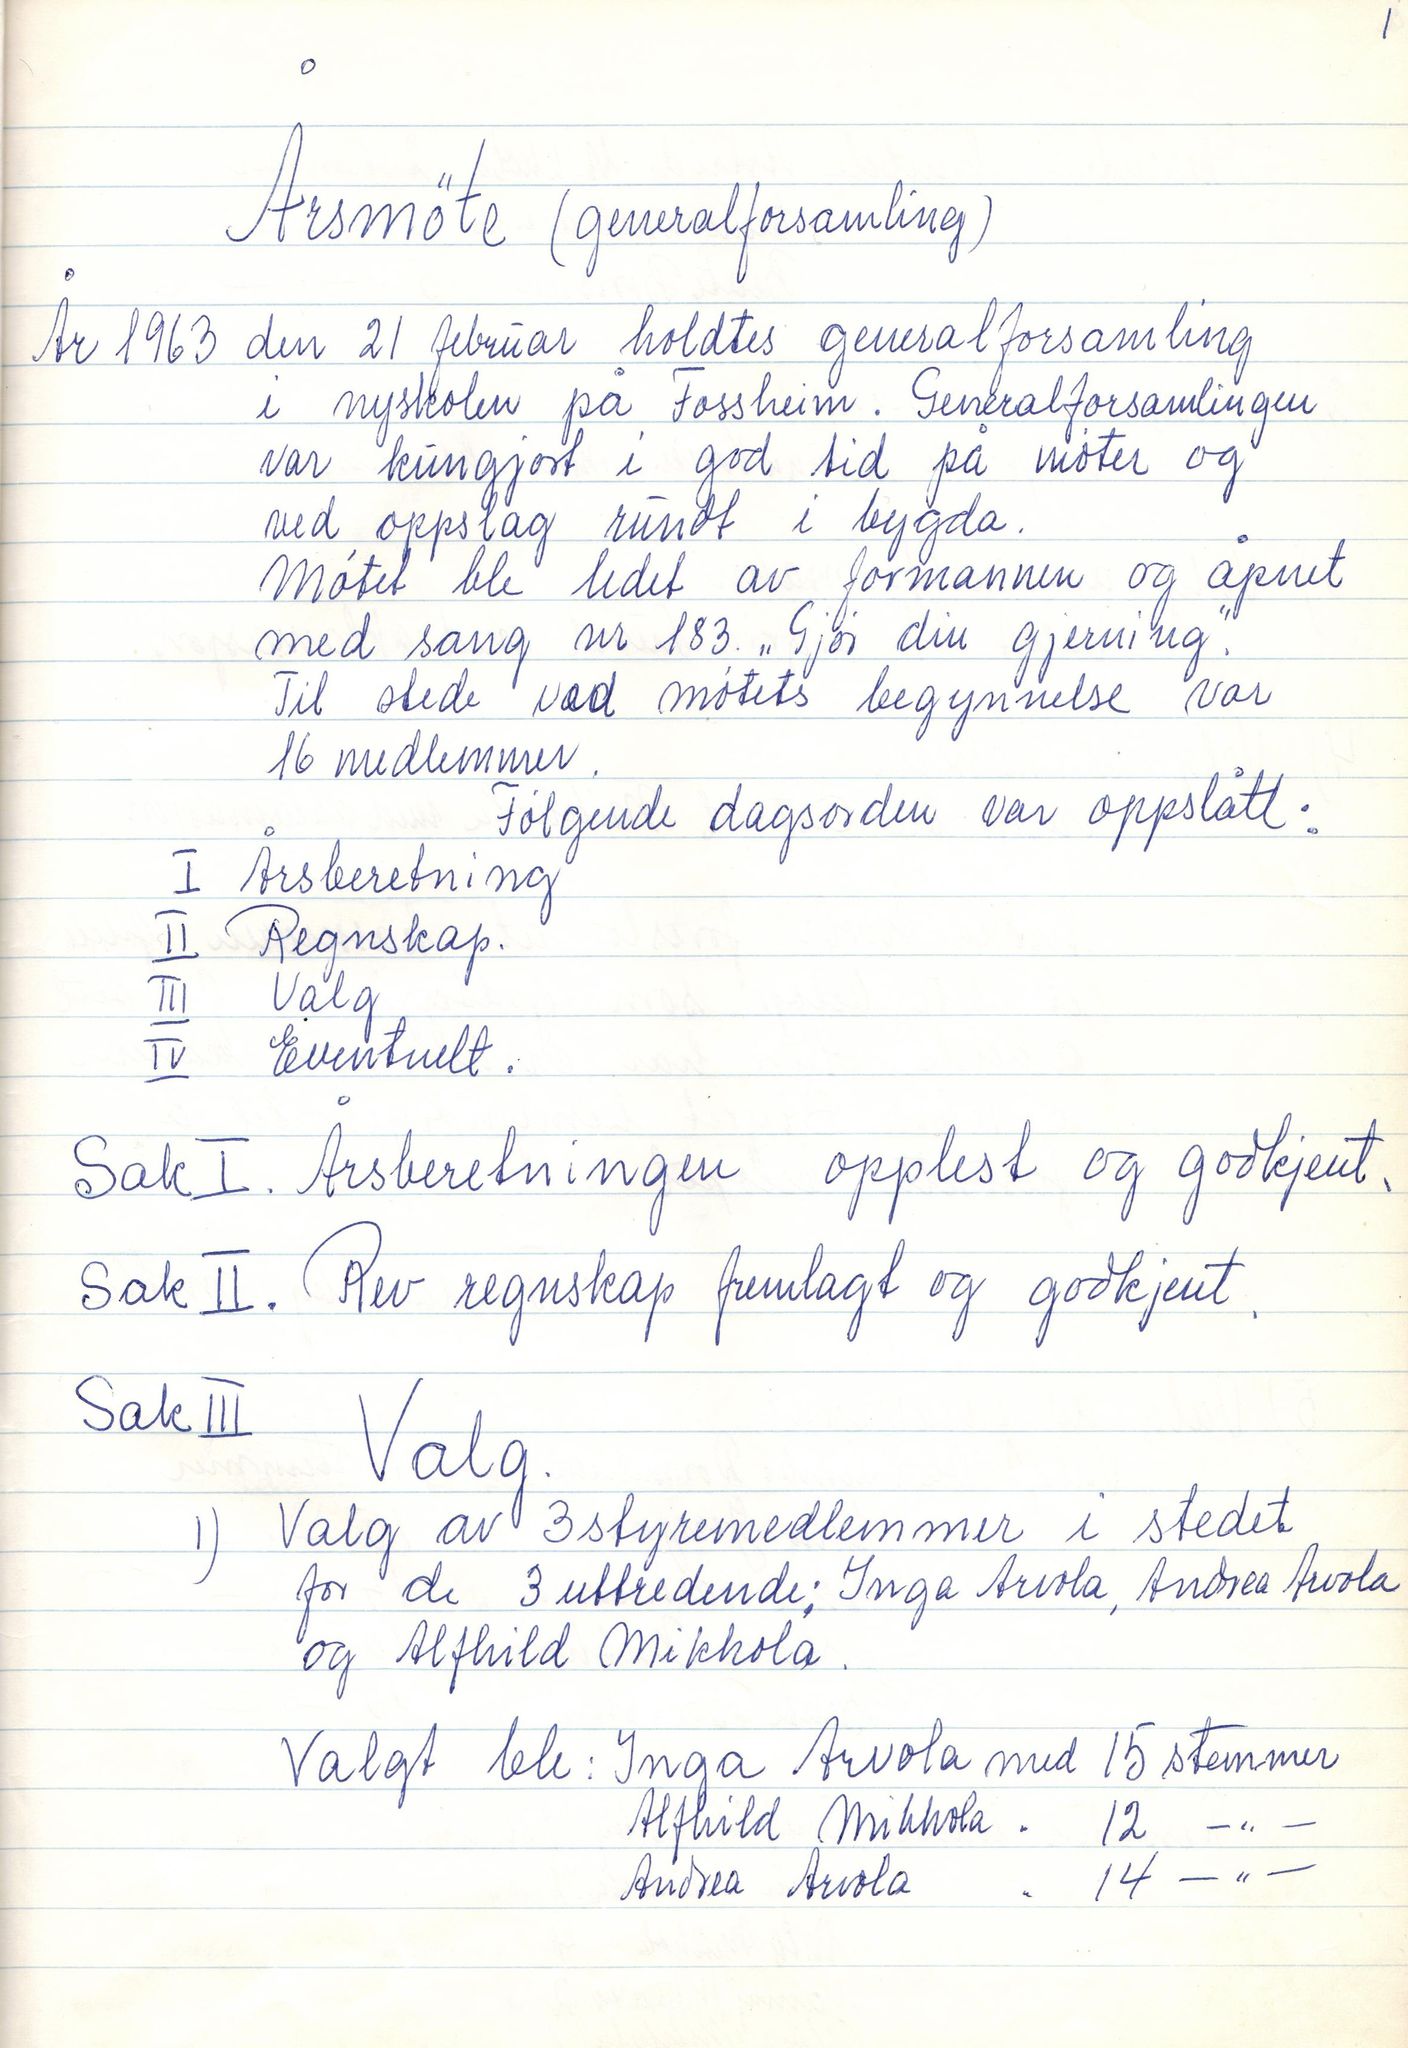 1
Årsmöte (generalforsamling)
År 1963 den 21 februar holdtes generalforsamling
i nyskolen på Fossheim. Generalforsamlingen
var kungjort i god tid på møter og
ved oppslag rundt i bygda.
Møtet ble ledet av formannen og åpnet
med sang nr 183. „Gjør din gjerning".
Til stede ved møtets begynnelse var
16 medlemmer.
Følgende dagsorden var oppslått:
I Årsberetning
II Regnskap.
III Valg
IV Eventuelt.
Sak I. Årsberetningen opplest og godkjent.
Sak II. Rev regnskap fremlagt og godkjent.
Sak III
Valg.
1) Valg av 3 styremedlemmer i stedet
for de 3 uttredende; Inga Arvola, Andrea Arvola
og Alfhild Mikkola.
Valgt ble: Inga Arvola med 15 stemmer
Alfhild Mikkola . 12 —"—
Andrea Arvola . 14 —"—